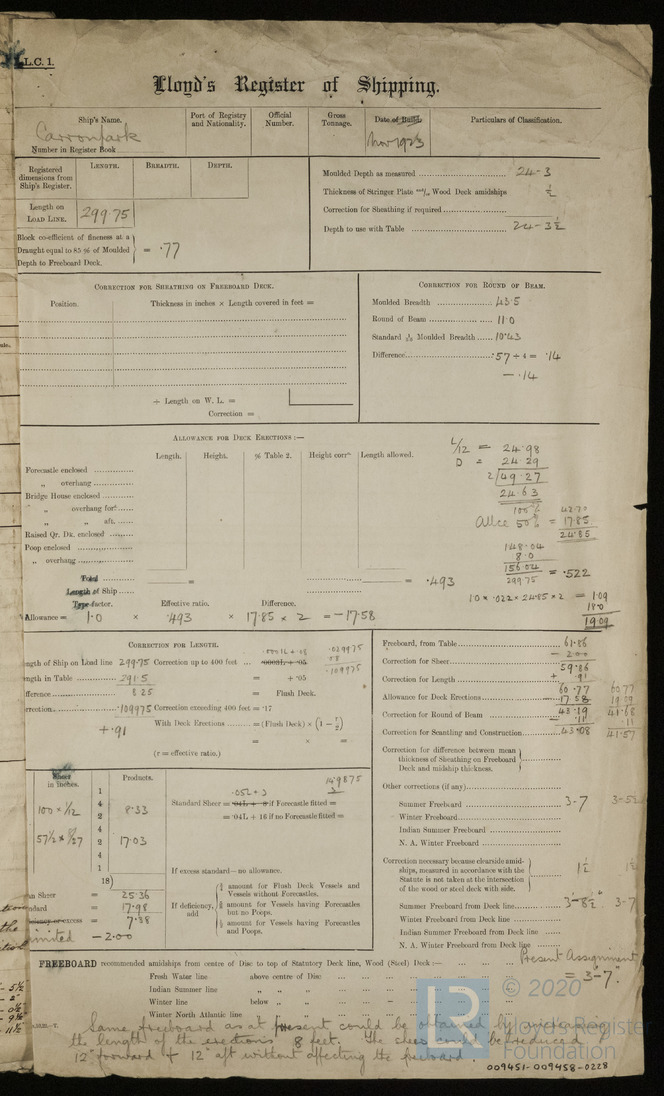 L.C. 1.
Lloyd's Register of Shipping.
Ship's Name.
Carronpark
Number in Register Book
Port of Registry and Nationality.
Official Number.
Gross Tonnage.
Date of Build.
Nov 1923
Particulars of Classification.
Registered dimensions from Ship's Register.
LENGTH. BREADTH. DEPTH.
Length on LOAD LINE. 299.75
Block co-efficient of fineness at a
Draught equal to 85 % of Moulded = .77
Depth to Freeboard Deck.
Moulded Depth as measured 24-3
Thickness of Stringer Plate Wood Deck amidships ½
Correction for Sheathing if required
Depth to use with Table 24-3½
CORRECTION FOR SHEATHING ON FREEBOARD DECK.
Position. Thickness in inches × Length covered in feet =
÷ Length on W. L. =
Correction =
CORRECTION FOR ROUND OF BEAM.
Moulded Breadth 43.5
Round of Beam 11.0
Standard Moulded Breadth 10.43
Difference .57 ÷ 4 = .14
- .14
ALLOWANCE FOR DECK ERECTIONS :—
Length. Height. % Table 2. Height corrn. Length allowed.
Forecastle enclosed
„ overhang
Bridge House enclosed
„ overhang for
„ „ aft.
Raised Qr. Dk. enclosed
Poop enclosed
„ overhang
Total = = .493
Length of Ship
Type factor. Effective ratio. Difference.
Allowance = 1.0 × .493 × 17.85 × 2 = -17.58
L/12 = 24.98
D = 24.29
2/49.27
24.63
100% 42.70
Allce 50% = 17.85
24.85
148.04
8.0
156.04
299.75 = .522
1.0 × .522 × 24.85 × 2 = 1.09
18.0
19.09
CORRECTION FOR LENGTH.
Length of Ship on Load line 299.75 Correction up to 400 feet
Length in Table 291.5 = + .05
Difference 8.25 = Flush Deck.
.109975 Correction exceeding 400 feet = .17
+.91 With Deck Erections = (Flush Deck) × (1 - r/2)
= ×
(r = effective ratio.)
.029975
.08
.109975
Freeboard, from Table 61.86
- 2.00
Correction for Sheer 59.86
Correction for Length + .91
60.77 60.77
Allowance for Deck Erections 17.58 19.09
43.19 41.68
Correction for Round of Beam .11 .11
Correction for Scantling and Construction 43.08 41.57
Correction for difference between mean
thickness of Sheathing on Freeboard
Deck and midship thickness.
Other corrections (if any)
Summer Freeboard 3-7 3-5½
Winter Freeboard
Indian Summer Freeboard
N. A. Winter Freeboard
Correction necessary because clearside amid-
ships, measured in accordance with the 1½ 1½
Statute is not taken at the intersection
of the wood or steel deck with side.
Summer Freeboard from Deck line 3-8½" 3-7
Winter Freeboard from Deck line
Indian Summer Freeboard from Deck line
N. A. Winter Freeboard from Deck line
Present Assignment
= 3'-7".
Sheer in inches. Products.
1
4
2
4
2
4
1
18
8.33
17.03
25.36
17.98
7.38
-2.00
14.9875
Standard Sheer = if Forecastle fitted =
= .04L + 16 if no Forecastle fitted =
If excess standard—no allowance.
If deficiency, add
amount for Flush Deck Vessels and Vessels without Forecastles.
amount for Vessels having Forecastles but no Poops.
amount for Vessels having Forecastles and Poops.
FREEBOARD recommended amidships from centre of Disc to top of Statutory Deck line, Wood (Steel) Deck :—
Fresh Water line above centre of Disc
Indian Summer line „ „
Winter line below „
Winter North Atlantic line „ „
Same freeboard as at present could be obtained by
the length of the erections 8 feet. The sheer could be reduced
12" forward & 12" aft without affecting the freeboard.
LR
© 2020
Lloyd's Register
Foundation
009451-009458-0228